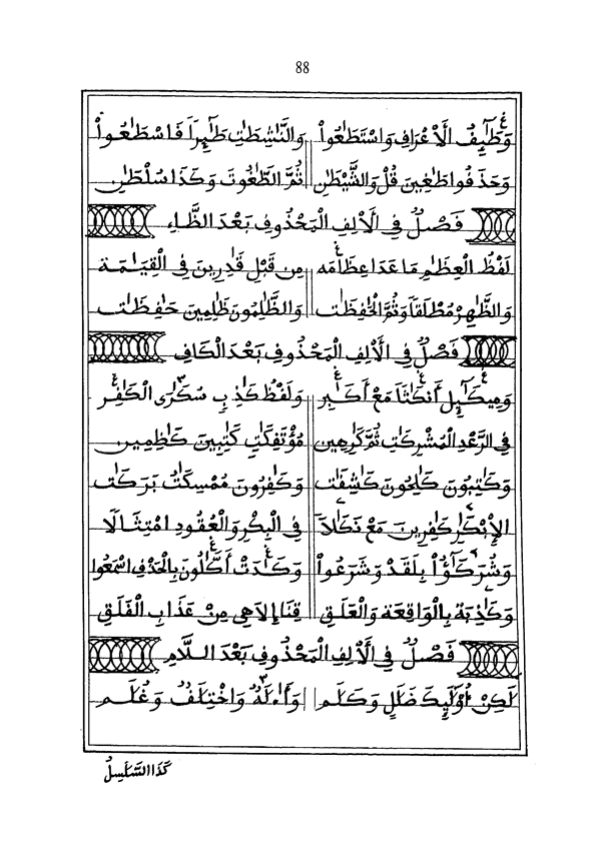 88
وَطَٰٓئِفُ الَاعْرَافِ وَاسْتَطَٰعُواْ وَالنَّٰشِطَٰتِ طَٰٓئِراَ فَاسْطَٰعُواْ
وَحَذَفُوا طَٰغِينَ قُلْ وَالشَّيْطَٰنِ ثُمَّ الطَّٰغُوتَ وَكَذَا سُلْطَٰنِ
فَصْلٌ فِي الَالِفِ الْمَحْذُوفِ بَعْدَ الظَّاءِ
لَفْظُ الْعِظَٰمِ مَا عَدَا عِظَٰمَه مِن قَبْلِ قَٰدِرِينَ فِي الْقِيَٰمَة
وَالظَّٰهِرْ مُطْلَقاً وَثُمَّ الْحَٰفِظَٰت وَالظَّٰلِمُونَ ظَٰلِمِينَ حَٰفِظَٰت
فَصْلٌ فِي الَالِفِ الْمَحْذُوفِ بَعْدَ الْكَافِ
وَمِيكَٰٓئِيلِ أَنكَٰثاً مَعْ أَكَٰبِر وَلَفْظُ كَٰذِبٍ سُكَٰرَى الْكَٰفِرُ
فِي الرَّعْدِ الْمُشْرِكَٰتِ ثُمَّ كَٰرِهِين مُؤْتَفِكَٰتِ كَٰتِبِينَ كَٰظِمِين
وَكَٰتِبُونَ كَٰلِحُونَ كَٰشِفَٰت وَكَٰفِرُونَ مُمْسِكَٰتُ بَرَكَٰت
الِابْكَٰرِ كَٰفِرِينَ مَعْ نَكَٰلَا فِي الْبِكْرِ وَالْعُقُودِ امْتِثَالَا
وَشُرَكَٰٓؤُاْ بِلَقَدْ وَشَرَعُواْ وَكَٰدَتْ أَكَّٰلُونَ بِالْحَذْفِ اسْمَعُوا
وَكَٰذِبَة بِالْوَاقِعَة وَالْعَلَقِ قِنَا إِلَاهِي مِنْ عَذَابِ الْفَلَقِ
فَصْلٌ فِي الَالِفِ الْمَحْذُوفِ بَعْدَ اللَّامِ
لَٰكِنْ أُوْلَٰٓئِكَ ضَلَٰلٍ وَكَلَٰم وَإِلَٰهُ وَاخْتِلَٰفُ وَغُلَٰم
كَذَا السَّلَٰسِلُ